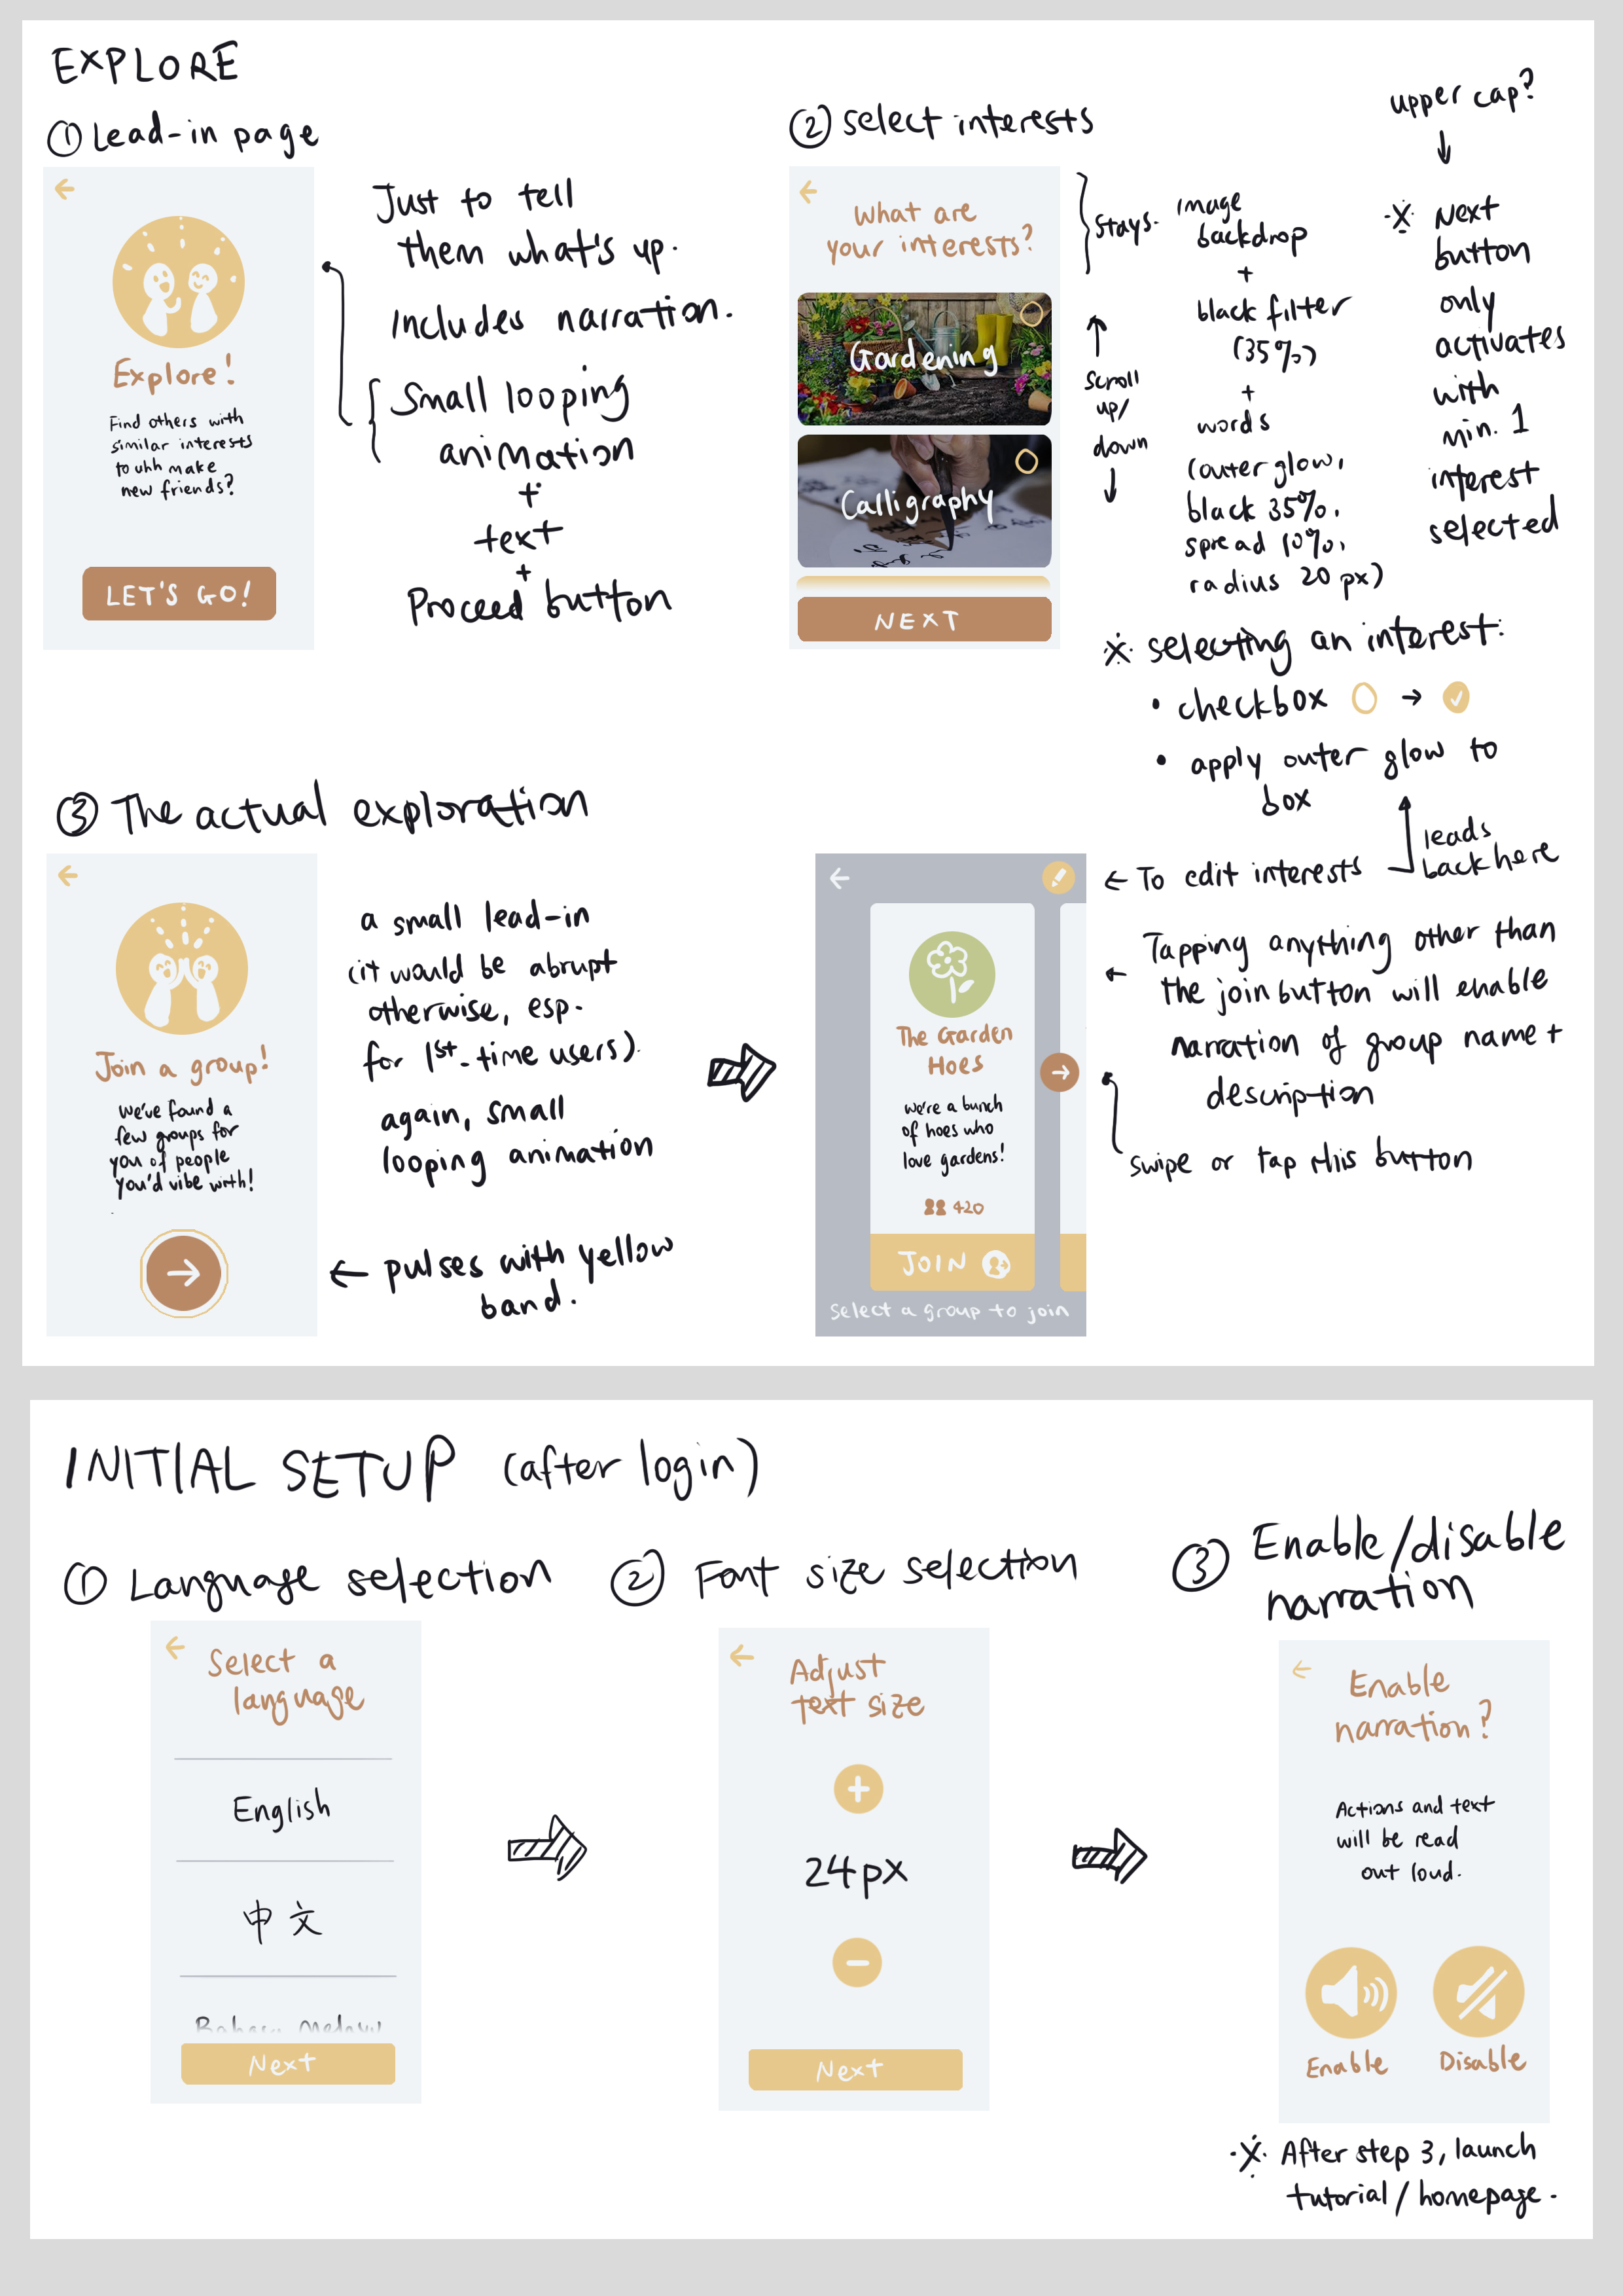 EXPLORE
① Lead-in page
Explore!
Find others with
similar interests
to uhh make
new friends?
LET'S GO!
Just to tell
them what's up.
Includes narration.
Small looping
animation
+
text
+
Proceed button
② select interests
What are
your interests?
Gardening
Calligraphy
NEXT
stays.
scroll
up/
down
image
backdrop
+
black filter
(35%)
+
words
(outer glow,
black 35%,
spread 10%,
radius 20 px)
upper cap?
※ Next
button
only
activates
with
min. 1
interest
selected
※ selecting an interest:
• checkbox → 
• apply outer glow to
box
leads
back here
③ The actual exploration
Join a group!
We've found a
few groups for
you of people
you'd vibe with!
a small lead-in
(it would be abrupt
otherwise, esp.
for 1st-time users).
again, small
looping animation
← pulses with yellow
band.
The Garden
Hoes
We're a bunch
of hoes who
love gardens!
420
JOIN
Select a group to join
← To edit interests
← Tapping anything other than
the join button will enable
narration of group name +
description
swipe or tap this button
INITIAL SETUP (after login)
① Language selection
Select a
language
English
中文
Bahasa Melayu
Next
② Font size selection
Adjust
text size
+
24px
−
Next
③ Enable/disable
narration
Enable
narration?
Actions and text
will be read
out loud.
Enable
Disable
※ After step 3, launch
tutorial/homepage.